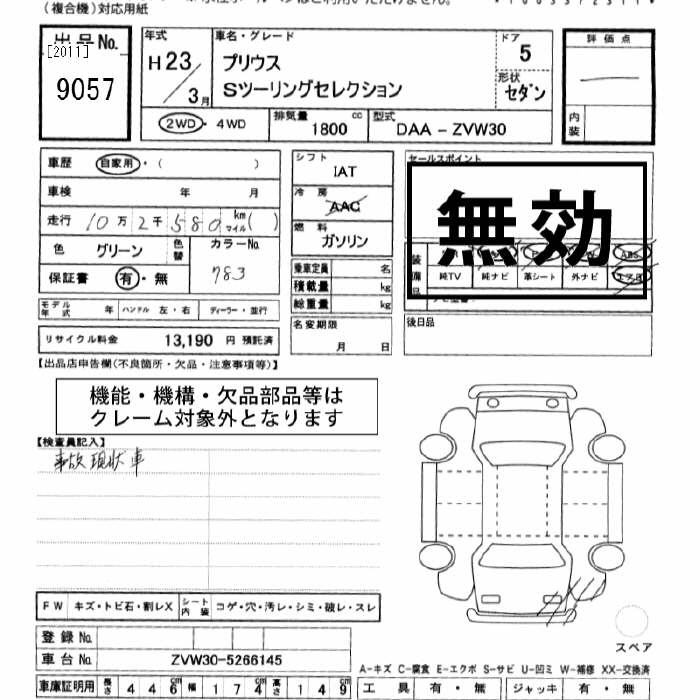 (複合機)対応用紙
出品No.
[2011]
9057
年式
H23/3月
車名・グレード
プリウス
Sツーリングセレクション
ドア
5
形状
セダン
評価点
内装
2WD・4WD
排気量
1800 cc
型式
DAA-ZVW30
車歴 自家用・( )
車検 年 月
走行 10万2千580 km マイル( )
色 グリーン 色替
カラーNo.
783
保証書 有・無
モデル年式 年 ハンドル 左・右 ディーラー・並行
リサイクル料金 13,190 円 預託済
シフト
IAT
冷房
AAC
燃料
ガソリン
乗車定員 名
積載量 kg
総重量 kg
名変期限
月 日
セールスポイント
無効
装備品
ABS
純TV 純ナビ 革シート 外ナビ エアB
後日品
【出品店申告欄(不良箇所・欠品・注意事項等)】
機能・機構・欠品部品等は
クレーム対象外となります
【検査員記入】
事故現状車
FW キズ・トビ石・割レX シート内装 コゲ・穴・汚レ・シミ・破レ・スレ
登録No.
車台No. ZVW30-5266145
車庫証明用 長さ 446 幅 174 高さ 149
スペア
A-キズ C-腐食 E-エクボ S-サビ U-凹ミ W-補修 XX-交換済
工具 有・無 ジャッキ 有・無